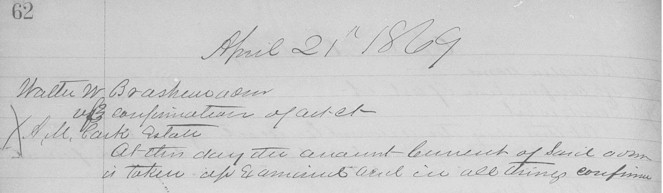 62
April 21st 1869
Walter W. Brashear adm
vs } confirmation of acct
A. M. Cark Estate
At this day the account Current of Said adm
is taken up Examined and in all things confirm